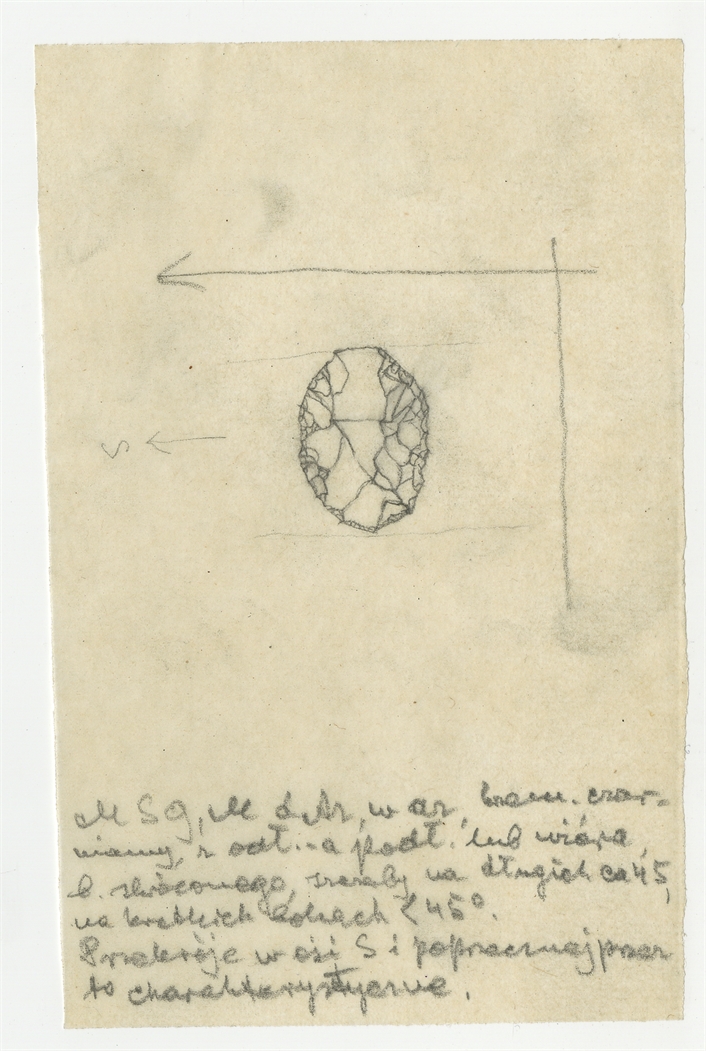 S
M S9, M ś Ar, w ar, krzem. czar-
niawy, z odł.-a podł. lub wióra,
b. skróconego, szeroby na długich ca 45,
na krótkich bokach < 45°.
Przekroje w osi S i poprzecznej przez
to charakterystyczne.